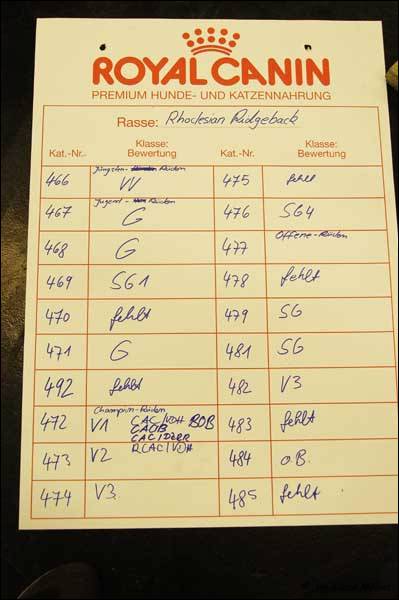 ROYAL CANIN
PREMIUM HUNDE- UND KATZENNAHRUNG
Rasse: Rhodesian Ridgeback
Kat.-Nr. Klasse: Bewertung Kat.-Nr. Klasse: Bewertung
466 Jüngsten- Rüden VV 475 fehlt
467 Jugend- Rüden G 476 SG4
468 G 477 Offene-Rüden
469 SG1 478 fehlt
470 fehlt 479 SG
471 G 481 SG
492 fehlt 482 V3
472 Champion-Rüden V1 CAC/VDH BOB CACIB 483 fehlt
473 V2 R(CAC/VDH 484 o.B.
474 V3 485 fehlt